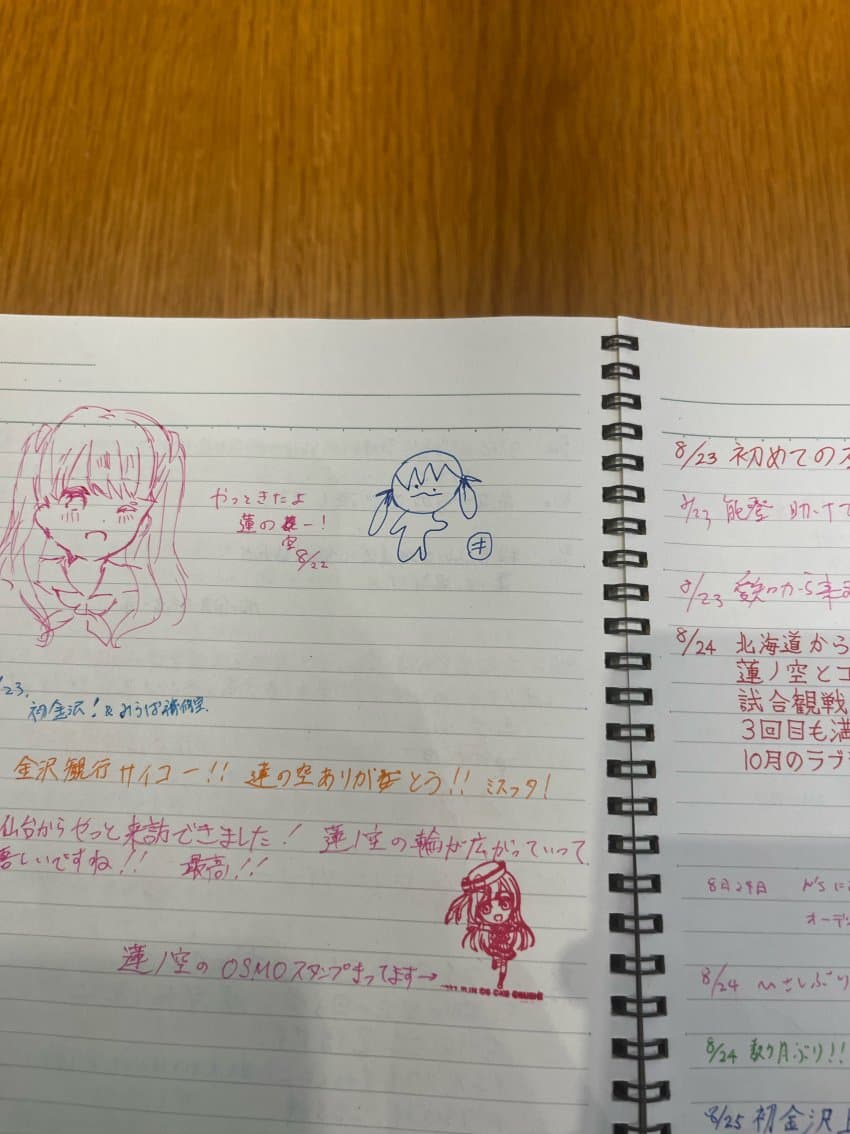 やっときたよ
蓮の空ー!
8/22
キ
初金沢!&みらぱ補習室
金沢観行サイコー!! 蓮の空ありがとう!! ミスッタ!
仙台からやっと来訪できました! 蓮ノ空の輪が広がっていって
喜しいですね!! 最高!!
蓮ノ空のOSMOスタンプまってます→
8/23 初めての
8/23 能登 助けて
8/23 愛知から来ま
8/24 北海道から
蓮ノ空と
試合観戦
3回目も満
10月のラブ
8月24日
オーデ
8/24 ひさしぶり
8/24 数ヶ月ぶり!!
8/25 初金沢